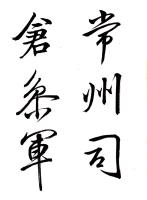 常州司
倉參軍